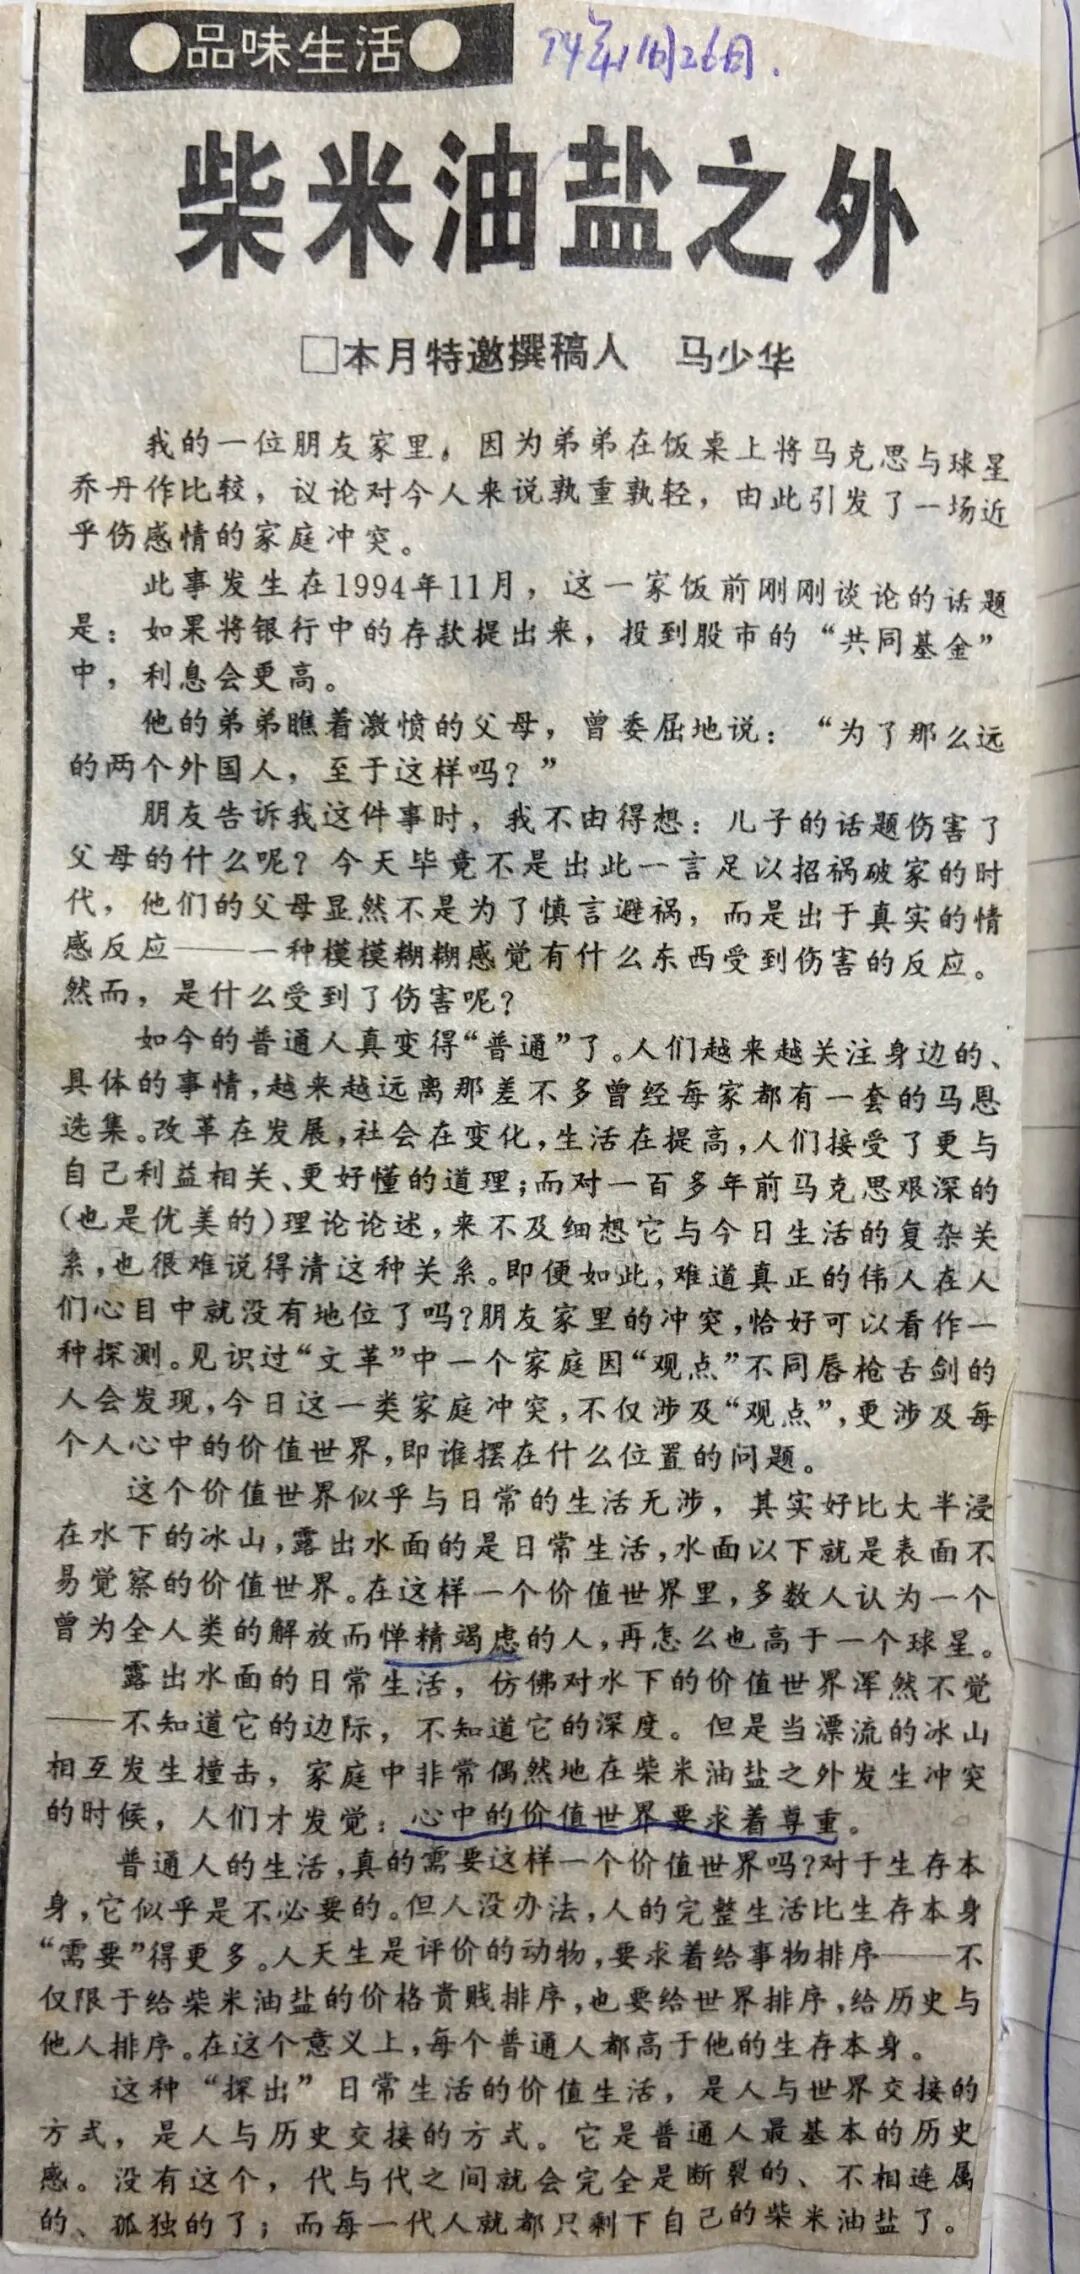 ●品味生活●
94年11月26日.
柴米油盐之外
□本月特邀撰稿人 马少华
我的一位朋友家里，因为弟弟在饭桌上将马克思与球星
乔丹作比较，议论对今人来说孰重孰轻，由此引发了一场近
乎伤感情的家庭冲突。
此事发生在1994年11月，这一家饭前刚刚谈论的话题
是：如果将银行中的存款提出来，投到股市的“共同基金”
中，利息会更高。
他的弟弟瞧着激愤的父母，曾委屈地说：“为了那么远
的两个外国人，至于这样吗？”
朋友告诉我这件事时，我不由得想：儿子的话题伤害了
父母的什么呢？今天毕竟不是出此一言足以招祸破家的时
代，他们的父母显然不是为了慎言避祸，而是出于真实的情
感反应——一种模模糊糊感觉有什么东西受到伤害的反应。
然而，是什么受到了伤害呢？
如今的普通人真变得“普通”了。人们越来越关注身边的、
具体的事情，越来越远离那差不多曾经每家都有一套的马恩
选集。改革在发展，社会在变化，生活在提高，人们接受了更与
自己利益相关、更好懂的道理；而对一百多年前马克思艰深的
（也是优美的）理论论述，来不及细想它与今日生活的复杂关
系，也很难说得清这种关系。即便如此，难道真正的伟人在人
们心目中就没有地位了吗？朋友家里的冲突，恰好可以看作一
种探测。见识过“文革”中一个家庭因“观点”不同唇枪舌剑的
人会发现，今日这一类家庭冲突，不仅涉及“观点”，更涉及每
个人心中的价值世界，即谁摆在什么位置的问题。
这个价值世界似乎与日常的生活无涉，其实好比大半浸
在水下的冰山，露出水面的是日常生活，水面以下就是表面不
易觉察的价值世界。在这样一个价值世界里，多数人认为一个
曾为全人类的解放而惮精竭虑的人，再怎么也高于一个球星。
露出水面的日常生活，仿佛对水下的价值世界浑然不觉
——不知道它的边际，不知道它的深度。但是当漂流的冰山
相互发生撞击，家庭中非常偶然地在柴米油盐之外发生冲突
的时候，人们才发觉：心中的价值世界要求着尊重。
普通人的生活，真的需要这样一个价值世界吗？对于生存本
身，它似乎是不必要的。但人没办法，人的完整生活比生存本身
“需要”得更多。人天生是评价的动物，要求着给事物排序——不
仅限于给柴米油盐的价格贵贱排序，也要给世界排序，给历史与
他人排序。在这个意义上，每个普通人都高于他的生存本身。
这种“探出”日常生活的价值生活，是人与世界交接的
方式，是人与历史交接的方式。它是普通人最基本的历史
感。没有这个，代与代之间就会完全是断裂的、不相连属
的、孤独的了；而每一代人就都只剩下自己的柴米油盐了。